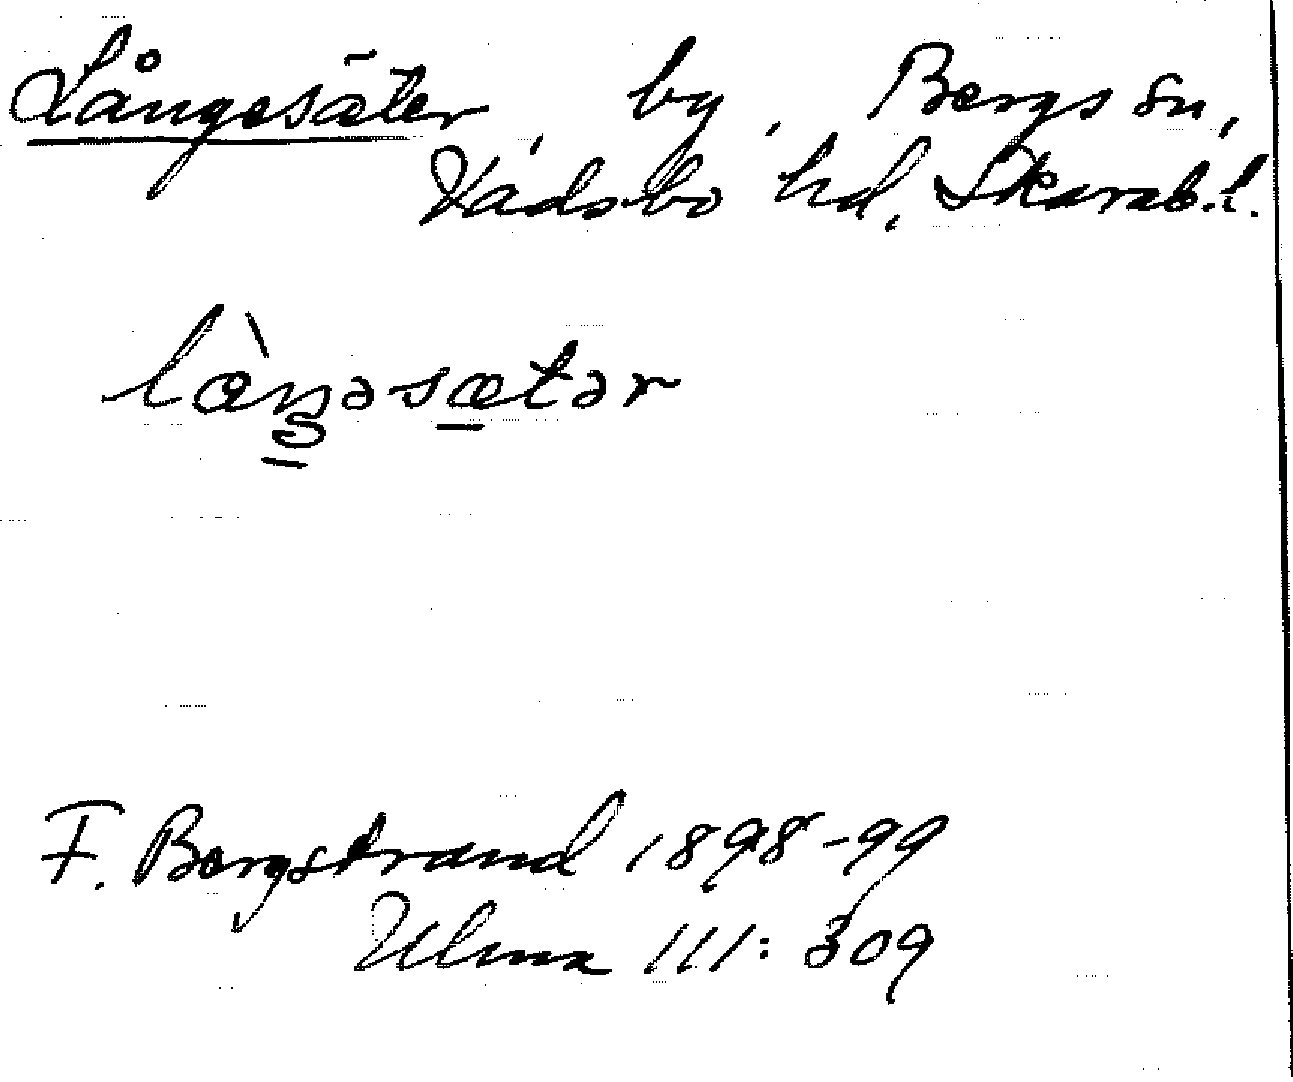 Långesäter, by, Bergs sn,
Vadsbo hd, Skarab.l.
læ̀ŋəsætər
F. Bergstrand 1898-99
Ulma 111:309